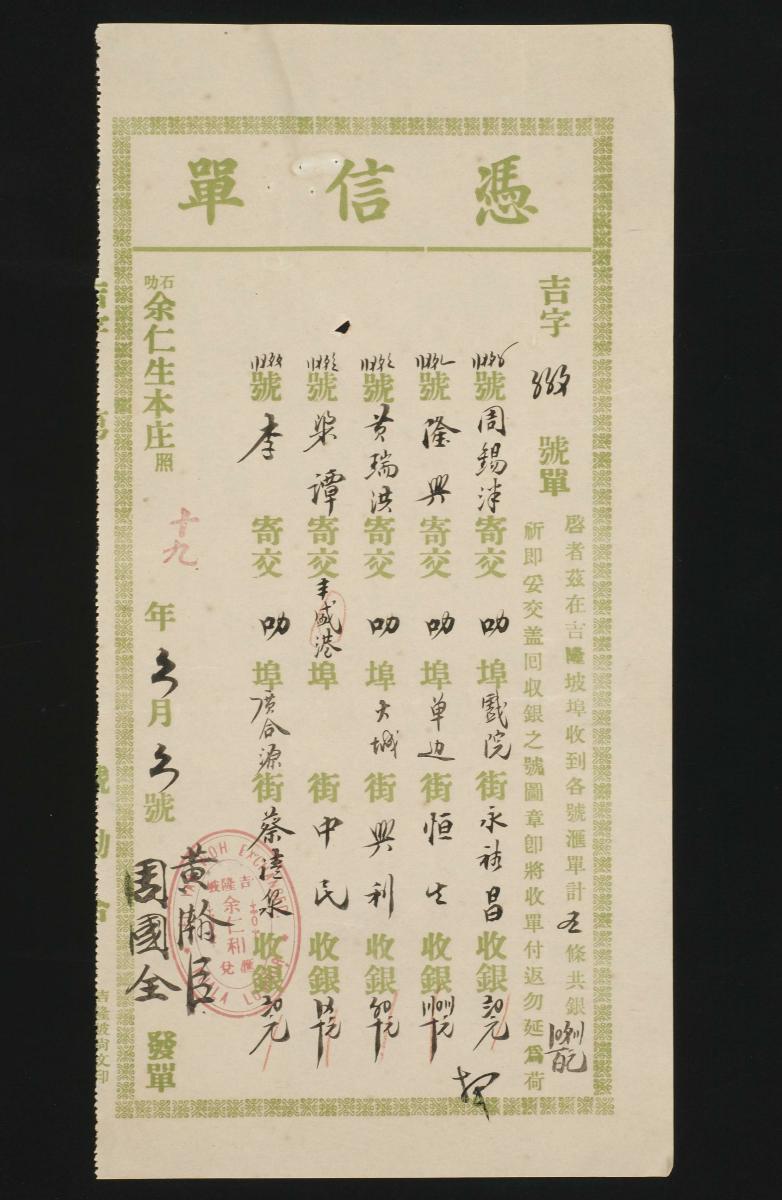 憑信單
吉字 號單
啓者茲在吉隆坡埠收到各號滙單計五條共銀
祈即妥交盖囘收銀之號圖章即將收單付返勿延爲荷
號周錫洋寄交叻埠戲院街永裕昌收銀
號隆興寄交叻埠单边街恒生收銀
號黄瑞洪寄交叻埠大城街興利收銀
號梁譚寄交丰盛港埠 街中民收銀
號李 寄交叻埠廣合源街蔡禮梁收銀
石叻余仁生本庄照 十九年 月 號 發單
黄瀚臣
周國全
吉隆坡
余仁利
滙兌
KUALA LUMPUR
吉隆坡尚文印